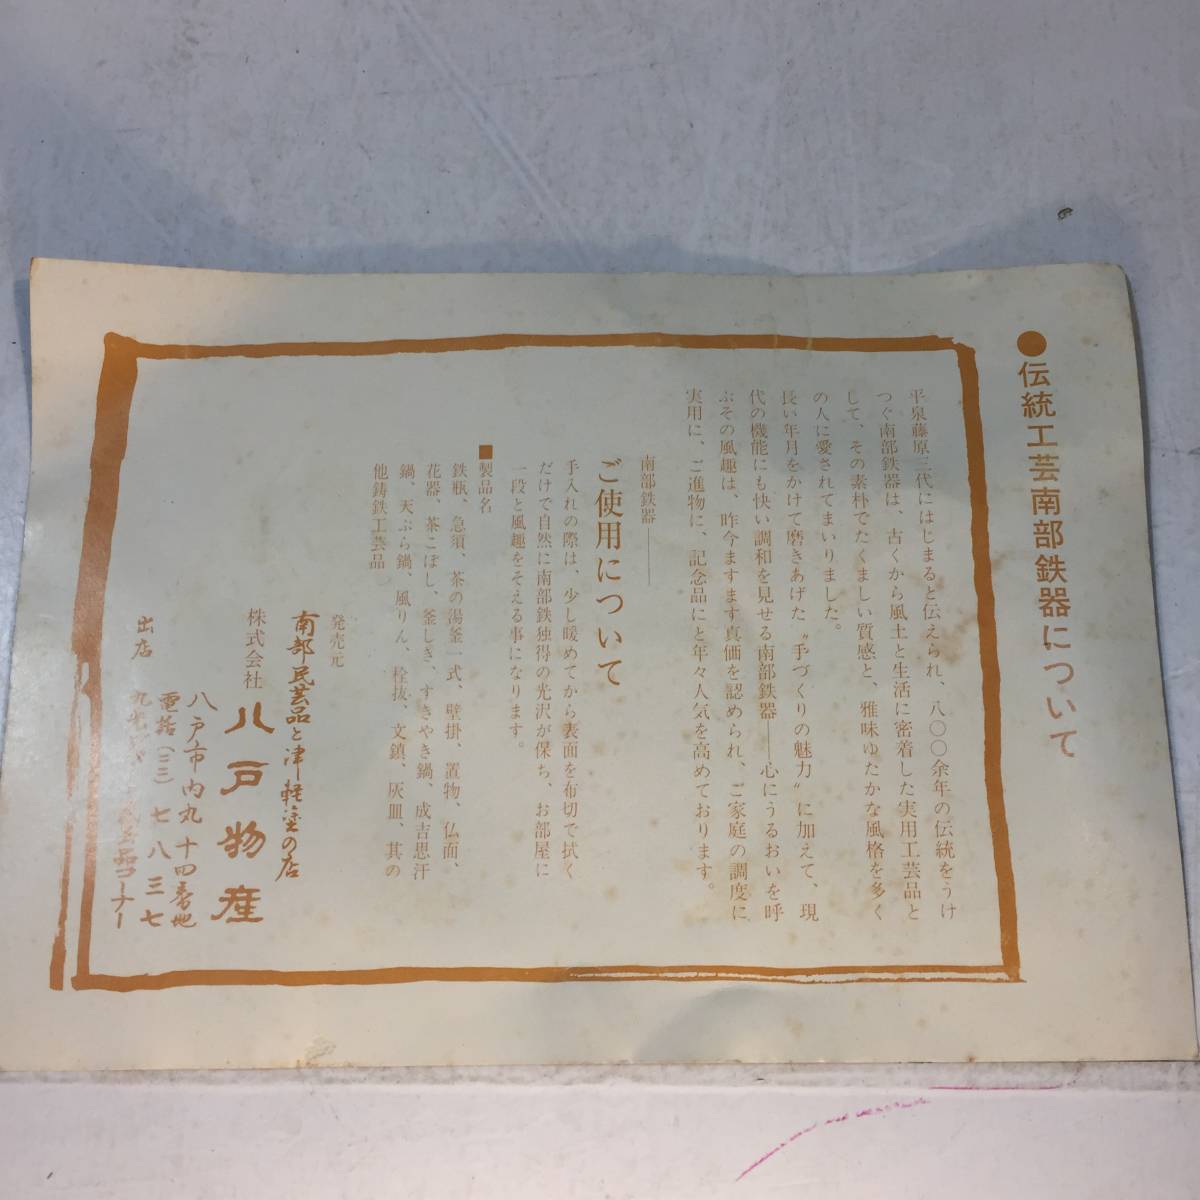 ●伝統工芸南部鉄器について
平泉藤原三代にはじまると伝えられ、八〇〇余年の伝統をうけ
つぐ南部鉄器は、古くから風土と生活に密着した実用工芸品と
して、その素朴でたくましい質感と、雅味ゆたかな風格を多く
の人に愛されてまいりました。
長い年月をかけて磨きあげた〝手づくりの魅力〟に加えて、現
代の機能にも快い調和を見せる南部鉄器──心にうるおいを呼
ぶその風趣は、昨今ますます真価を認められ、ご家庭の調度に
実用に、ご進物に、記念品にと年々人気を高めております。
南部鉄器──
ご使用について
手入れの際は、少し暖めてから表面を布切で拭く
だけで自然に南部鉄独得の光沢が保ち、お部屋に
一段と風趣をそえる事になります。
■製品名
鉄瓶、急須、茶の湯釜一式、壁掛、置物、仏面、
花器、茶こぼし、釜しき、すきやき鍋、成吉思汗
鍋、天ぷら鍋、風りん、栓抜、文鎮、灰皿、其の
他鋳鉄工芸品
発売元
南部民芸品と津軽塗の店
株式会社 八戸物産
八戸市内丸十四番地
電話(二二)七八三七
出店 コーナー